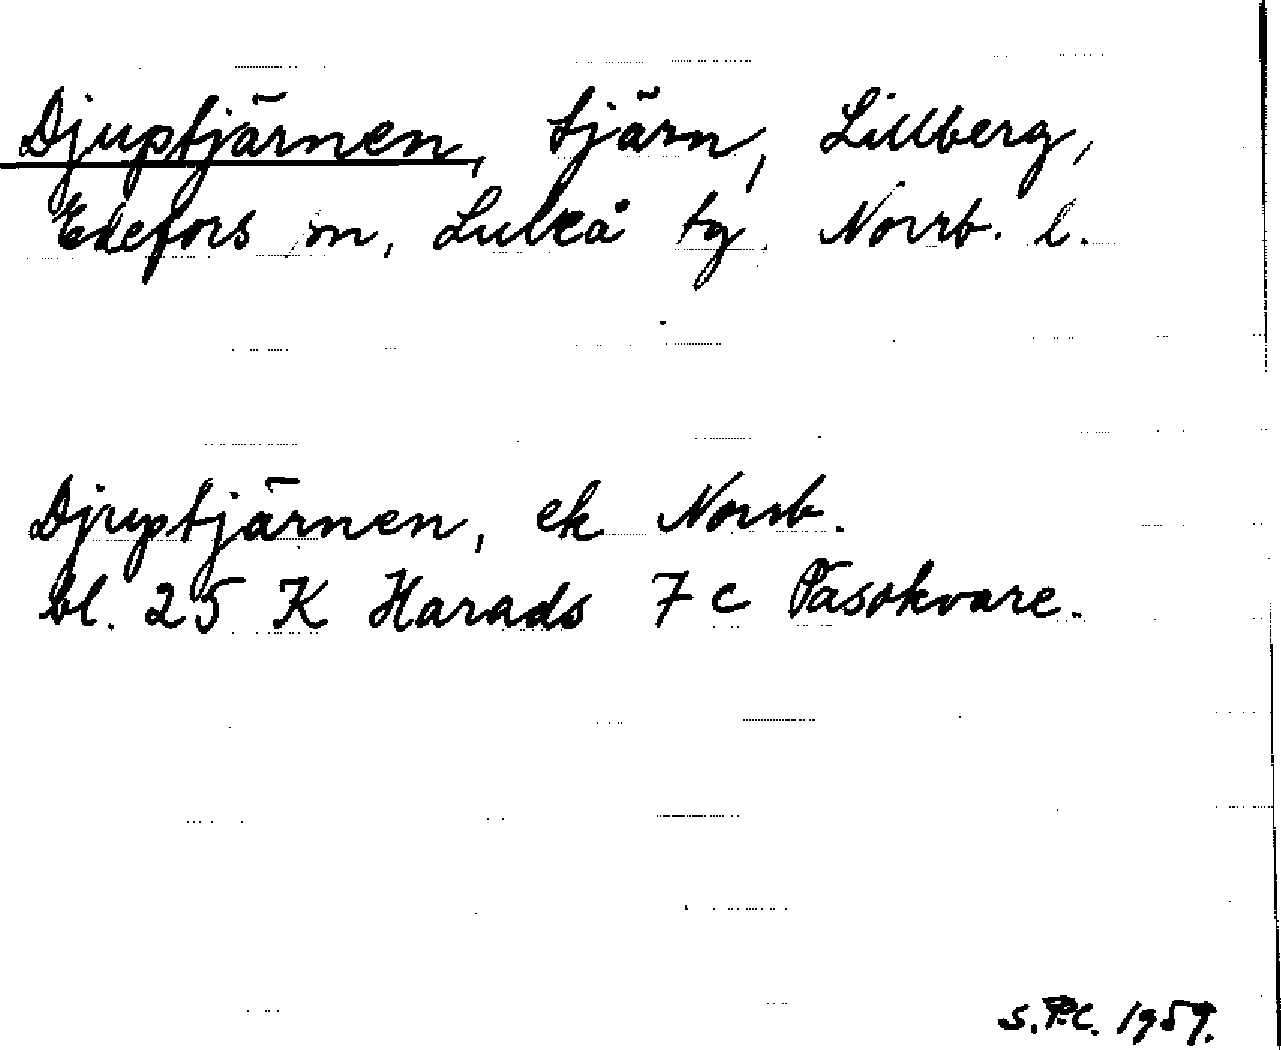 Djuptjärnen, tjärn, Lillberg,
Edefors sn, Luleå tg. Norrb. l.
Djuptjärnen, ek Norrb.
bl. 25 K Harads 7 c Påsokvare.
S.P.C. 1959.